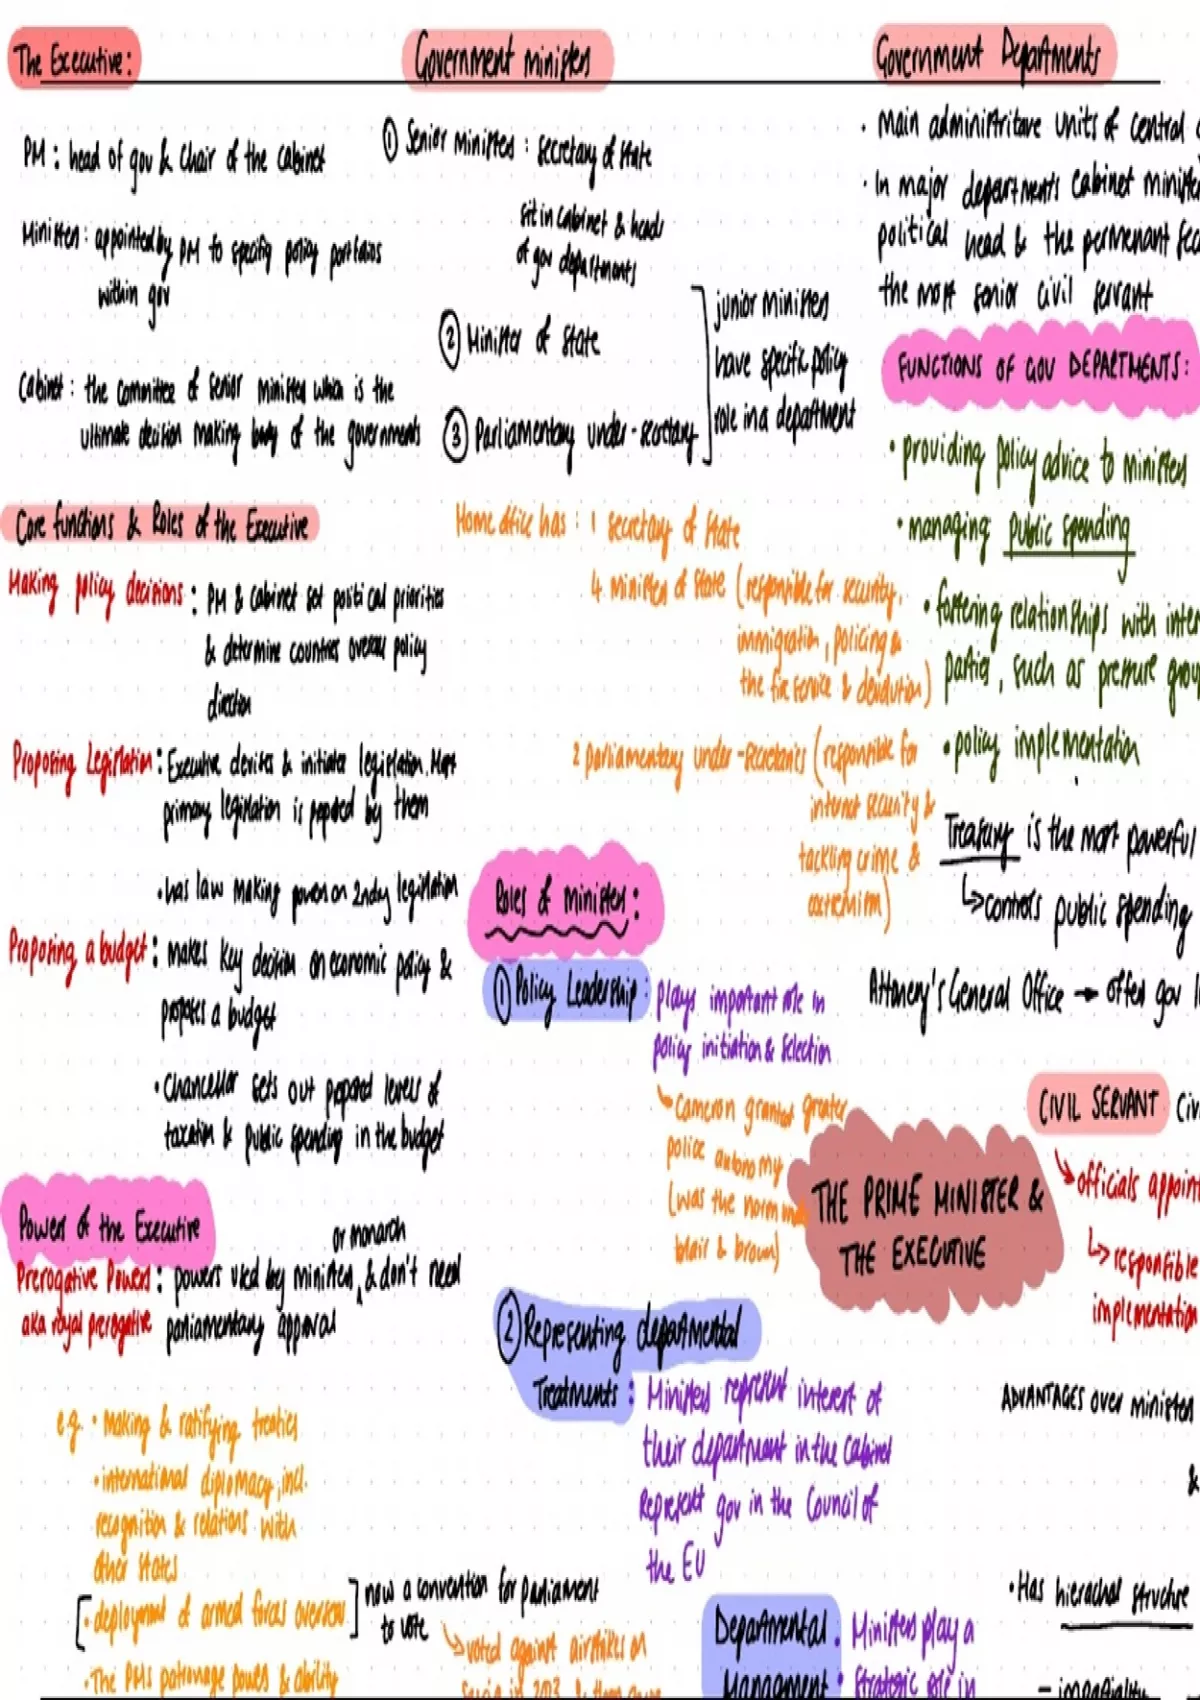 The Executive:
PM : head of gov & Chair of the cabinet
Ministers : appointed by PM to specific policy portfolios
within gov
Cabinet : the committee of senior ministers which is the
ultimate decision making body of the governments
Core functions & Roles of the Executive
Making policy decisions : PM & cabinet set political priorities
& determine countries overall policy
direction
Proposing Legislation : Executive devises & initiates legislation. Most
primary legislation is proposed by them
• has law making powers on 2ndry legislation
Proposing a budget : makes key decision on economic policy &
proposes a budget
• Chancellor sets out proposed levels of
taxation & public spending in the budget
Powers of the Executive
or monarch
Prerogative Powers : powers used by ministers, & don't need
aka royal prerogative parliamentary approval
e.g. • making & ratifying treaties
• international diplomacy, incl.
recognition & relations with
other states
[• deployment of armed forces overseas] now a convention for parliament
to vote
↳ voted against airstrikes on
• The PMs patronage powers & ability
Government ministers
① Senior ministers : secretary of state
sit in cabinet & heads
of gov departments
② Minister of State
③ Parliamentary under-secretary
junior ministers
have specific policy
role in a department
Home office has : 1 secretary of state
4 ministers of state (responsible for security,
immigration, policing &
the fire service & devolution)
2 parliamentary under-secretaries (responsible for
internet security &
tackling crime &
extremism)
Roles of ministers :
① Policy Leadership : plays important role in
policy initiation & selection
↳ Cameron granted greater
police autonomy
(was the norm
blair & brown)
THE PRIME MINISTER &
THE EXECUTIVE
② Representing departmental
Treatments : Ministers represent interest of
their department in the cabinet
Represent gov in the Council of
the EU
Departmental : Ministers play a
Management • strategic role in
Government Departments
• Main administritave units of central
• In major departments cabinet
political head & the permenant
the most senior civil servant
FUNCTIONS OF GOV DEPARTMENTS :
• providing policy advice to ministers
• managing public spending
• fostering relationships with
parties, such as pressure
• policy implementation
Treasury is the most powerful
↳ controls public spending
Attorney's General Office → offers gov
CIVIL SERVANT
↳ officials
↳ responsible
implementation
ADVANTAGES over ministers
&
• Has hierachal structure
– impartiality